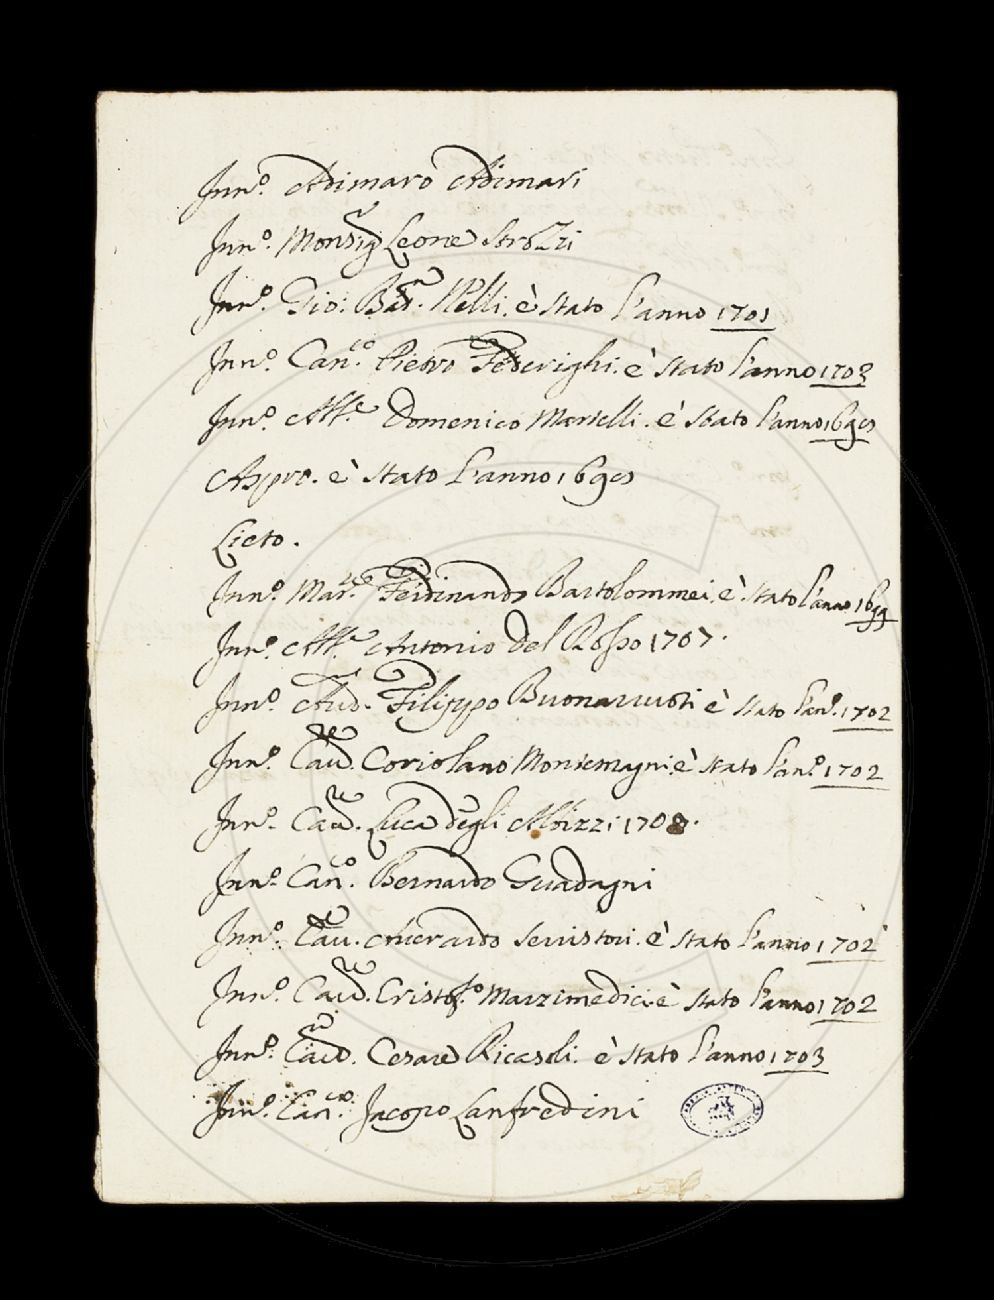 Inn.º Adimaro Adimari
Inn.º Monsig.re Leone Strozzi
Inn.º Gio: Bat.a Nelli. è Stato l'anno 1701
Inn.º Can.co Pietro Federighi. è Stato l'anno 1703
Inn.º Domenico Martelli. è Stato l'anno
Aspro. è Stato l'anno
Lieto.
Inn.º Mar.se Ferdinando Bartolommei. è Stato l'anno 1699
Inn.º Antonio del Rosso 1707.
Inn.º Aud.re Filippo Buonarruoti è Stato l'an.º 1702
Inn.º Cav.re Coriolano Montemagni. è Stato l'an.º 1702
Inn.º Cav.re Luca degli Albizzi
Inn.º Can.co Bernardo Guadagni
Inn.º Cav.re Averardo Serristori. è Stato l'anno 1702
Inn.º Cav.re Cristof.º Marzimedici. è Stato l'anno 1702
Inn.º Cav.re Cesare Ricasoli. è Stato l'anno 1703
Inn.º Can.co Jacopo Lanfredini